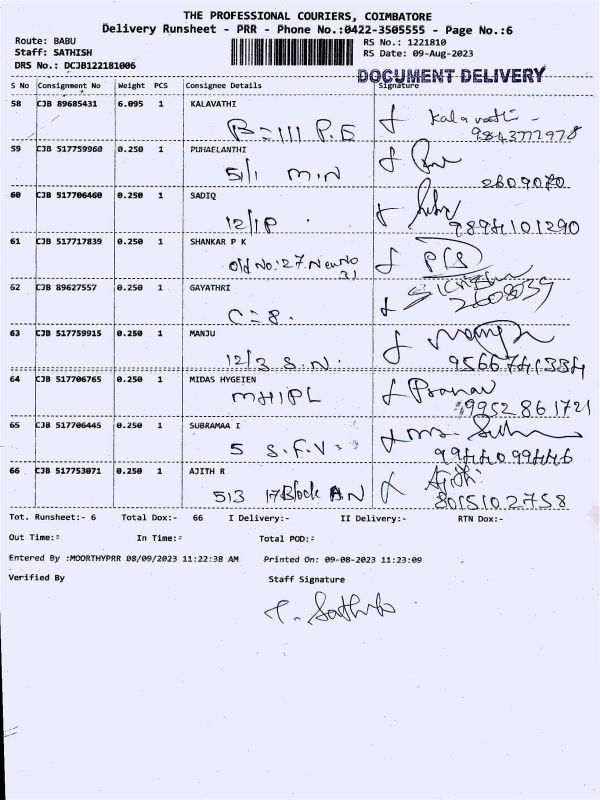 THE PROFESSIONAL COURIERS, COIMBATORE
Delivery Runsheet - PRR - Phone No.:0422-3505555 - Page No.:6
Route: BABU RS No.: 1221810
Staff: SATHISH RS Date: 09-Aug-2023
DRS No.: DCJB122181006
DOCUMENT DELIVERY
S No Consignment No Weight PCS Consignee Details Signature
58 CJB 89685431 6.095 1 KALAVATHI
Kalavathi -
B=111 P.E 9843772978
59 CJB 517759960 0.250 1 PUHAELANTHI
5/1 M.N 2609070
60 CJB 517706460 0.250 1 SADIQ
12/1P 9894101290
61 CJB 517717839 0.250 1 SHANKAR P K
Old No:27 New No
31
62 CJB 89627557 0.250 1 GAYATHRI
2608039
C=8.
63 CJB 517759915 0.250 1 MANJU
12/3 S.N.
64 CJB 517706765 0.250 1 MIDAS HYGEIEN
MHIPL Pranav
9952861721
65 CJB 517706445 0.250 1 SUBRAMAA I
5 S.F.V
9944099446
66 CJB 517753071 0.250 1 AJITH R
Ajith
513 17Block AN 8015102758
Tot. Runsheet:- 6 Total Dox:- 66 I Delivery:- II Delivery:- RTN Dox:-
Out Time:- In Time:- Total POD:-
Entered By :MOORTHYPRR 08/09/2023 11:22:38 AM Printed On: 09-08-2023 11:23:09
Verified By Staff Signature